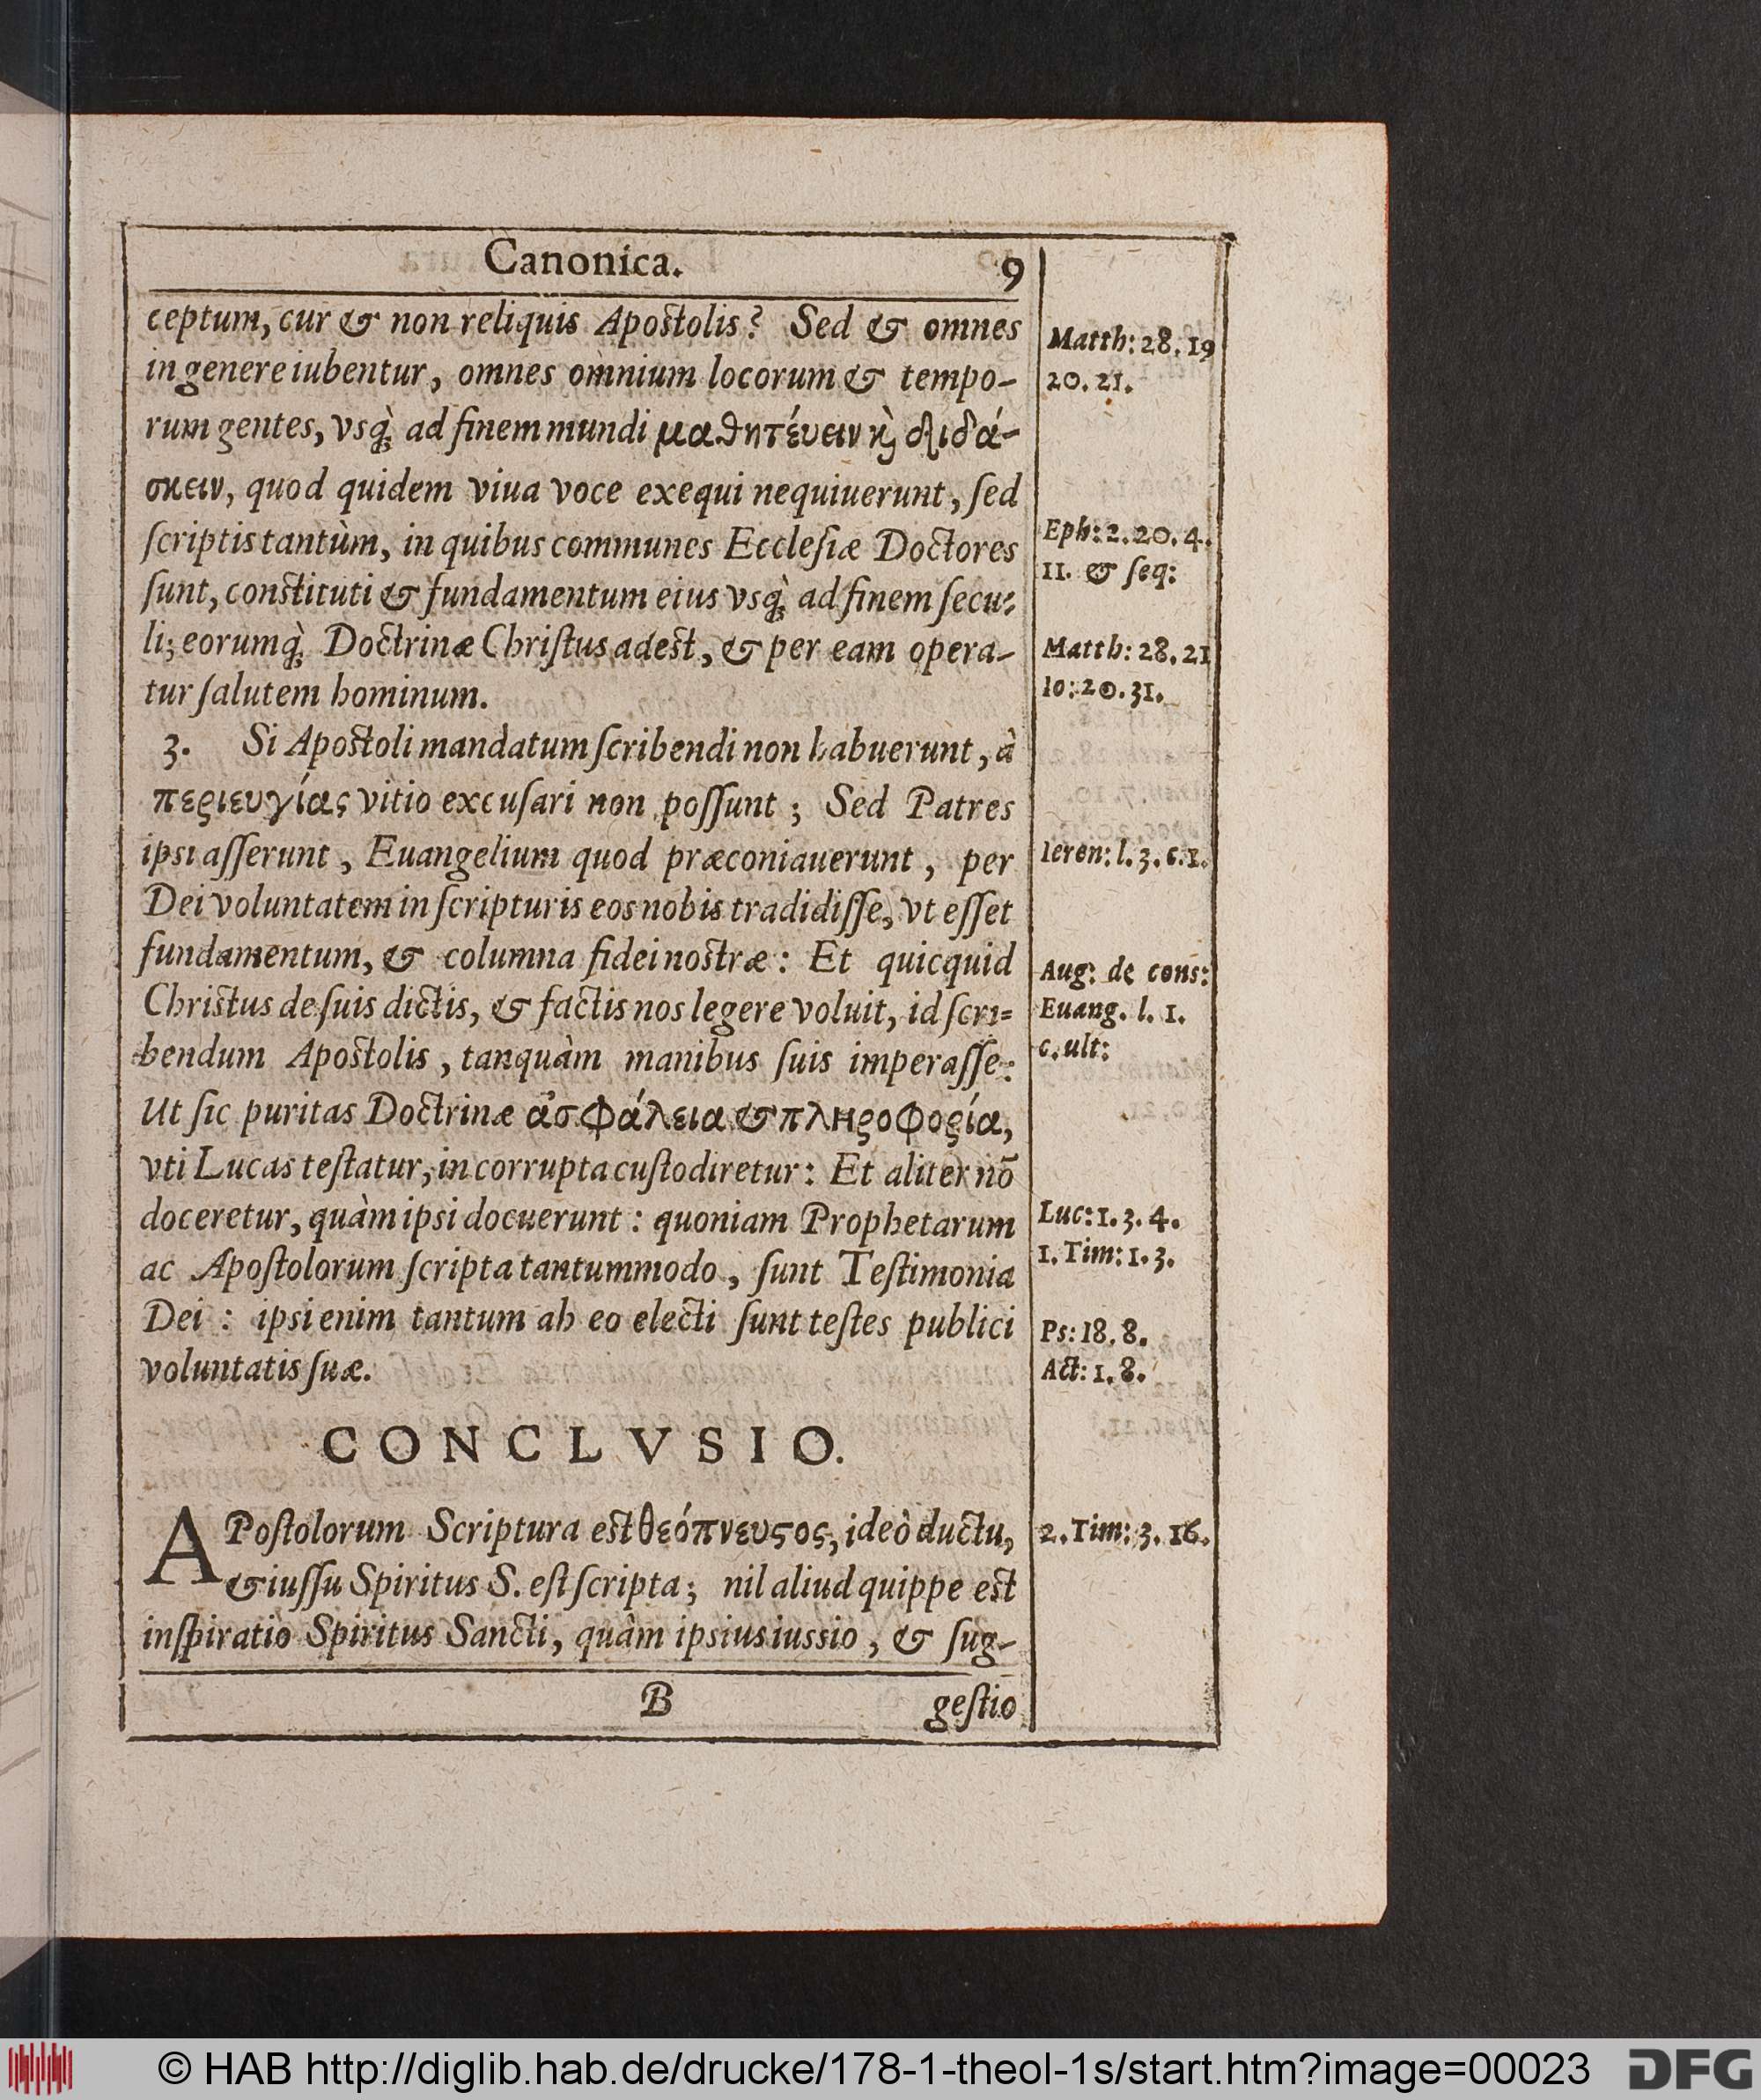 Canonica. 9
ceptum, cur & non reliquis Apostolis? Sed & omnes
in genere iubentur, omnes omnium locorum & tempo-
rum gentes, vsq; ad finem mundi μαθητέυειν ϗ διδά-
σκειν, quod quidem viua voce exequi nequiuerunt, ſed
ſcriptis tantùm, in quibus communes Eccleſiæ Doctores
ſunt, constituti & fundamentum eius vsq; ad finem ſecu-
li; eorumq; Doctrinæ Chriſtus adest, & per eam opera-
tur ſalutem hominum.
3. Si Apostoli mandatum ſcribendi non habuerunt, à
περιευγίας vitio excuſari non poſſunt; Sed Patres
ipsi aſſerunt, Euangelium quod præconiauerunt, per
Dei voluntatem in ſcripturis eos nobis tradidiſſe, vt eſſet
fundamentum, & columna fidei nostræ: Et quicquid
Christus de ſuis dictis, & factis nos legere voluit, id ſcri-
bendum Apostolis, tanquàm manibus ſuis imperaſſe:
Ut ſic puritas Doctrinæ ἀσφάλεια & πληροφορία,
vti Lucas teſtatur, incorrupta cuſtodiretur: Et aliter nō
doceretur, quàm ipsi docuerunt: quoniam Prophetarum
ac Apoſtolorum ſcripta tantummodo, ſunt Teſtimonia
Dei: ipsi enim tantum ab eo electi ſunt teſtes publici
voluntatis ſuæ.
CONCLVSIO.
APoſtolorum Scriptura est θεόπνευςος, ideò ductu,
& iuſſu Spiritus S. eſt ſcripta; nil aliud quippe est
inſpiratio Spiritus Sancti, quàm ipsius iussio, & ſug-
B geſtio
Matth: 28. 19
20. 21.
Eph: 2. 20. 4.
11. & ſeq:
Matth: 28. 21
Io: 20. 31.
Ieren: l. 3. c. 1.
Aug: de cons:
Euang. l. 1.
c. ult:
Luc: 1. 3. 4.
1. Tim: 1. 3.
Ps: 18. 8.
Act: 1. 8.
2. Tim: 3. 16.
© HAB http://diglib.hab.de/drucke/178-1-theol-1s/start.htm?image=00023 DFG